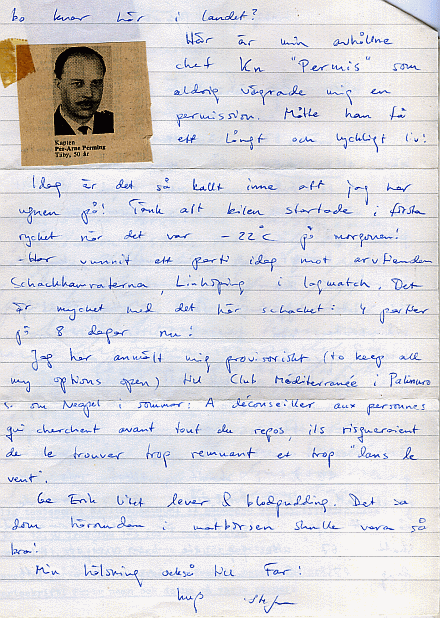 bo kvar här i landet?
Här är min avhållne
chef Kn "Permis" som
aldrig vägrade mig en
permission. Måtte han få
ett långt och lyckligt liv!
Kapten
Per-Arne Perming
Täby, 50 år
Idag är det så kallt inne att jag har
ugnen på! Tänk att bilen startade i första
rycket när det var -22°C på morgonen!
- Har vunnit ett parti idag mot arvfienden
Schackkamraterna, Linköping i lagmatch. Det
är mycket med det här schacket: 4 partier
på 8 dagar nu!
Jag har anmält mig provisoriskt (to keep all
my options open) till Club Méditerranée i Palinuro
s. om Neapel i sommar: A déconseiller aux personnes
qui cherchent avant tout du repos, ils risqueraient
de le trouver trop remuant et trop "dans le
vent".
Ge Erik litet lever & blodpudding. Det sa
dom häromdan i matbörsen skulle vara så
bra!
Min hälsning också till Far!
hus